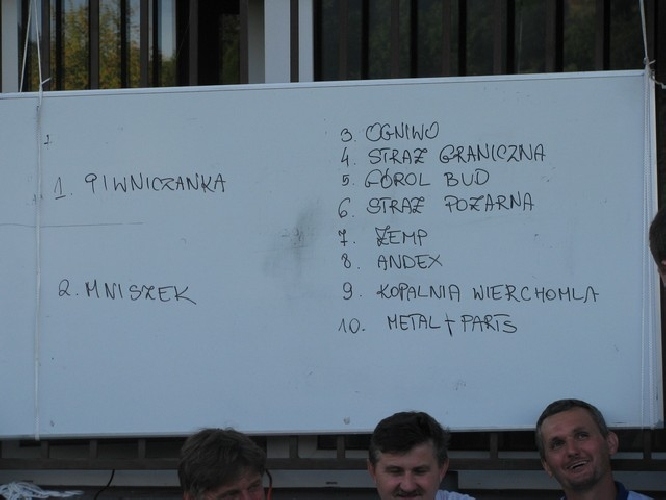 1. PIWNICZANKA
2. MNISZEK
3. OGNIWO
4. STRAŻ GRANICZNA
5. GÓROL BUD
6. STRAŻ POŻARNA
7. ŻEMP
8. ANDEX
9. KOPALNIA WIERCHOMLA
10. METAL + PARTS